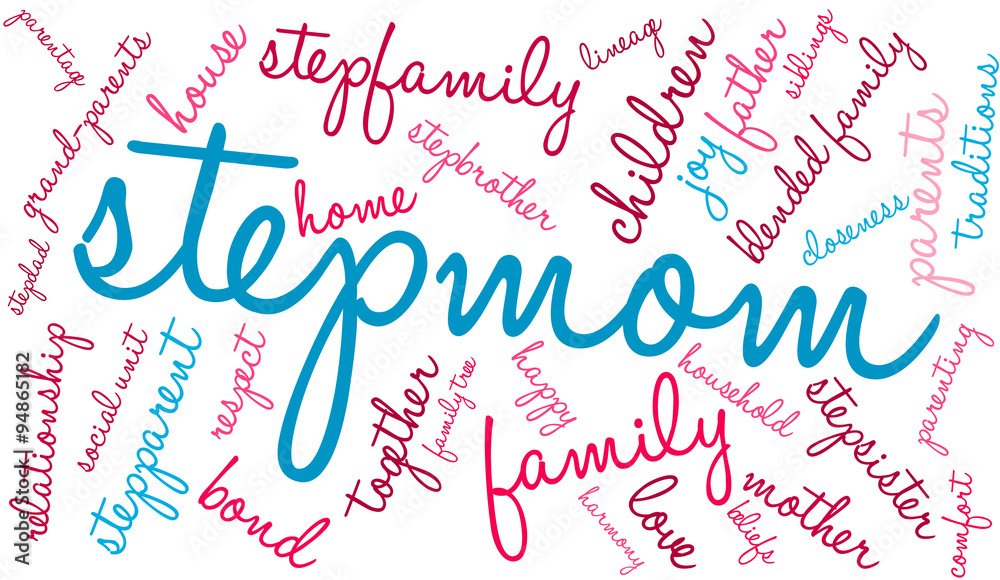 parentage
grand-parents
house
stepfamily
lineage
children
joy
father
siblings
blended family
parents
traditions
closeness
stepbrother
home
stepmom
stepdad
relationship
social unit
stepparent
respect
bond
together
family tree
happy
family
household
harmony
love
beliefs
mother
stepsister
parenting
comfort
Adobe Stock | #94865182
Adobe Stock